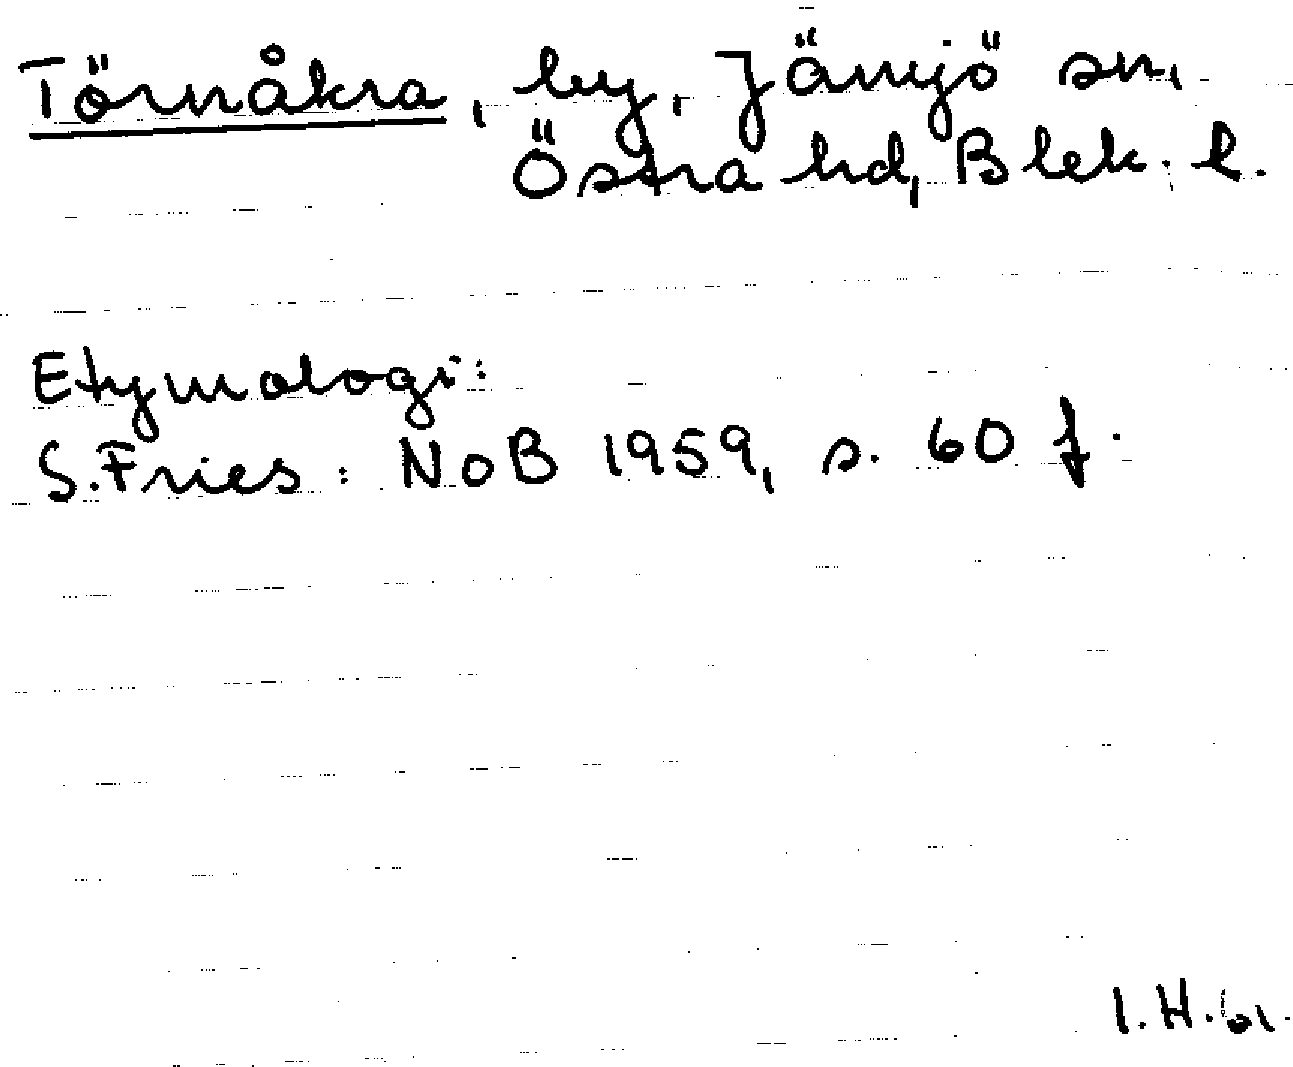 Törnåkra, by, Jämjö sn,
Östra hd, Blek. l.
Etymologi:
S. Fries: NoB 1959, s. 60 f.
I.H. 61.